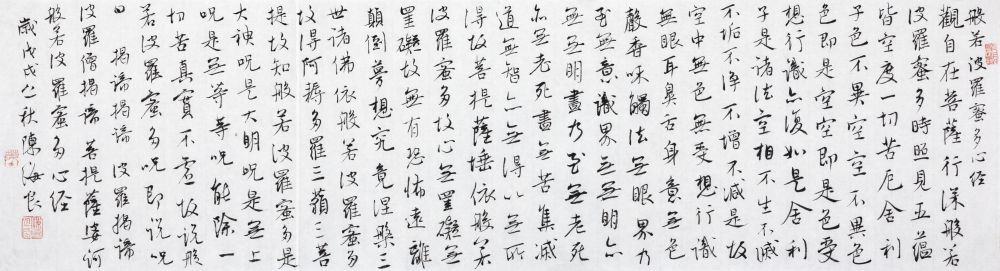 般若波羅蜜多心經
觀自在菩薩行深般若
波羅蜜多時照見五蘊
皆空度一切苦厄舍利
子色不異空空不異色
色即是空空即是色受
想行識亦復如是舍利
子是諸法空相不生不滅
不垢不淨不增不減是故
空中無色無受想行識
無眼耳鼻舌身意無色
聲香味觸法無眼界乃
至無意識界无无明亦
无无明盡乃至无老死
亦无老死盡無苦集滅
道無智亦無得以无所
得故菩提薩埵依般若
波羅蜜多故心無罣礙无
罣礙故無有恐怖遠離
顛倒夢想究竟涅槃三
世諸佛依般若波羅蜜多
故得阿耨多羅三藐三菩
提故知般若波羅蜜多是
大神呪是大明呪是无上
呪是无等等呪能除一
切苦真實不虛故說般
若波羅蜜多呪即說呪
曰 揭諦揭諦 波羅揭諦
波羅僧揭諦 菩提薩婆訶
般若波羅蜜多心經
歲戊戌之秋陳海良